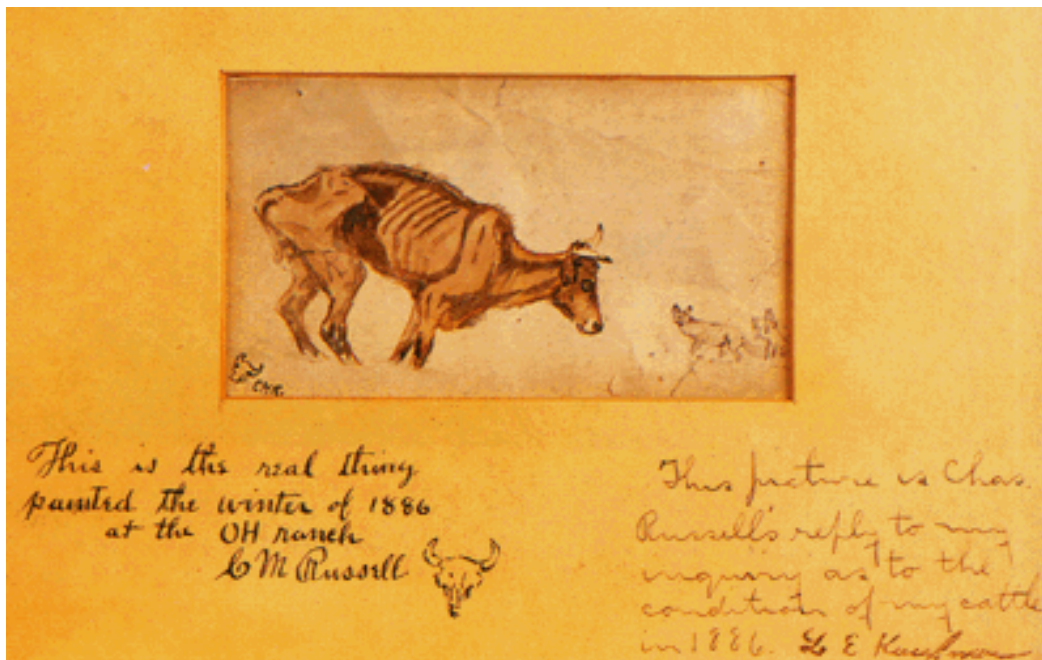 CMR.
This is the real thing
painted the winter of 1886
at the OH ranch
C M Russell
This picture is Chas.
Russell's reply to my
inquiry as to the
condition of my cattle
in 1886. L E